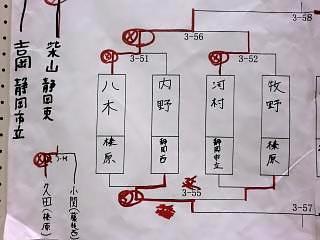 3-58
3-56
3-51
3-52
八木
榛原
内野
静岡西
河村
静岡市立
牧野
榛原
3-55
3-57
柴山 静岡東
吉岡 静岡市立
久田(榛原)